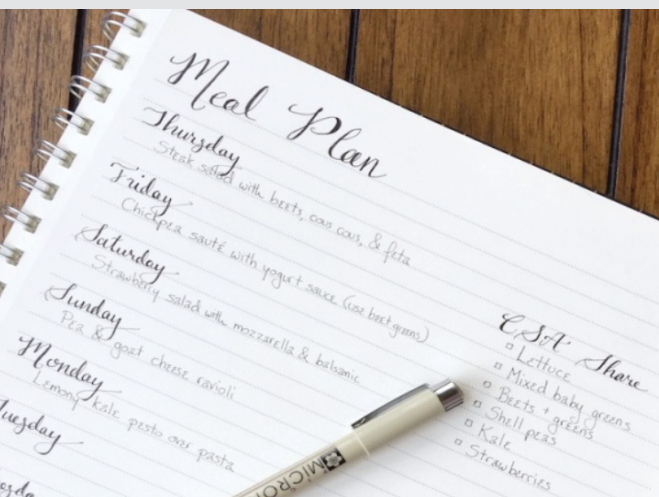 Meal Plan
Thursday
Steak salad with beets, cous cous, & feta
Friday
Chickpea sauté with yogurt sauce (use beet greens)
Saturday
Strawberry salad with mozzarella & balsamic
Sunday
Pea & goat cheese ravioli
Monday
Lemony kale pesto over pasta
Tuesday
CSA Share
Lettuce
Mixed baby greens
Beets + greens
Shell peas
Kale
Strawberries
MICRON